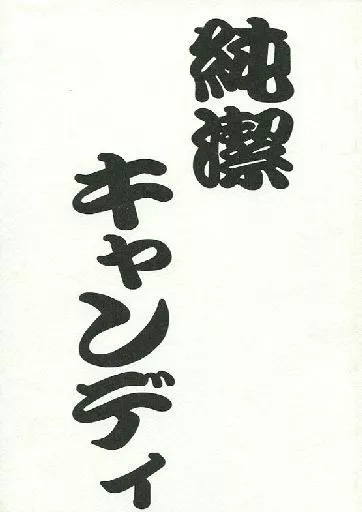 純潔
キャンディ